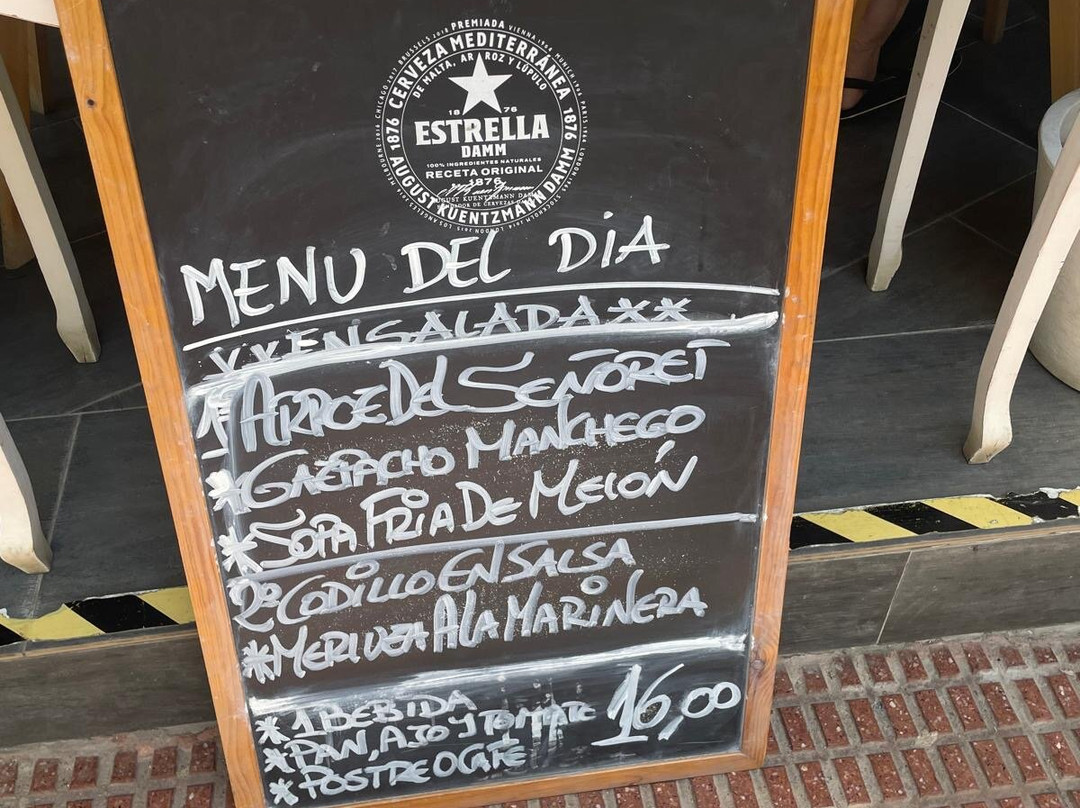 PREMIADA
CERVEZA MEDITERRÁNEA
DE MALTA, ARROZ Y LÚPULO
1876
1876
18 76
ESTRELLA
DAMM
100% INGREDIENTES NATURALES
RECETA ORIGINAL
1876
AUGUST KUENTZMANN DAMM
MENU DEL DIA
**ENSALADA**
1º ARROZ DEL SEÑORET
*GAZPACHO MANCHEGO
*SOPA FRIA DE MELÓN
2º CODILLO EN SALSA
*MERLUZA A LA MARINERA
*1 BEBIDA
*PAN, AJO Y TOMATE 16,00
*POSTRE O CAFE